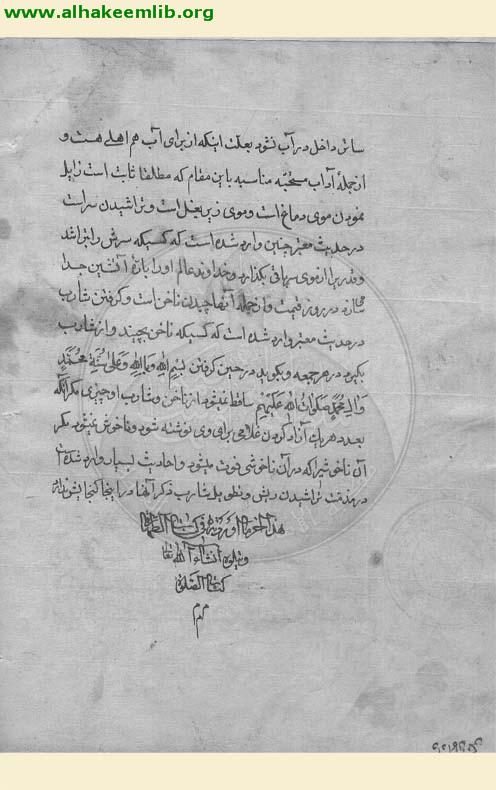 www.alhakeemlib.org
ساتر داخل در آب نشود بعلت اینکه از برای آب هم اهلی هست و
از جملهٔ آداب مستحبّه مناسبه باین مقام که مطلقا ثابت است زایل
نمودن موی دماغ است و موی زیر بغل است و تراشیدن سر است
در حدیث معتبر چنین وارد شده است که کسیکه سرش را بتراشد
از موی سر باقی نگذارد خداوند عالم او را آتشین جدا
در روز قیمت و از جمله آنها چیدن ناخن است و گرفتن شارب
در حدیث معتبر وارد شده است که کسیکه ناخن بچیند و از شارب
بگیرد در هر جمعه و بگوید در حین گرفتن بسم الله و بالله و علی سنّة محمّد
و آل محمّد صلوات الله علیهم ساقط نمیشود از ناخن و شارب او چیزی مگر آنکه
بعدد هر یک آزاد کردن غلامی برای وی نوشته شود و ناخوش نمیشود مگر
آن ناخوشی که در آن ناخوشی فوت میشود و احادیث بسیار وارد شده است
در مذمت تراشیدن ریش و تطویل شارب ذکر آنها در اینجا کنجایش ندارد
هذا آخر ما اوردته فی کتاب الطهارة
و یتلوه انشاء الله تعا
کتاب الصلوة
م م